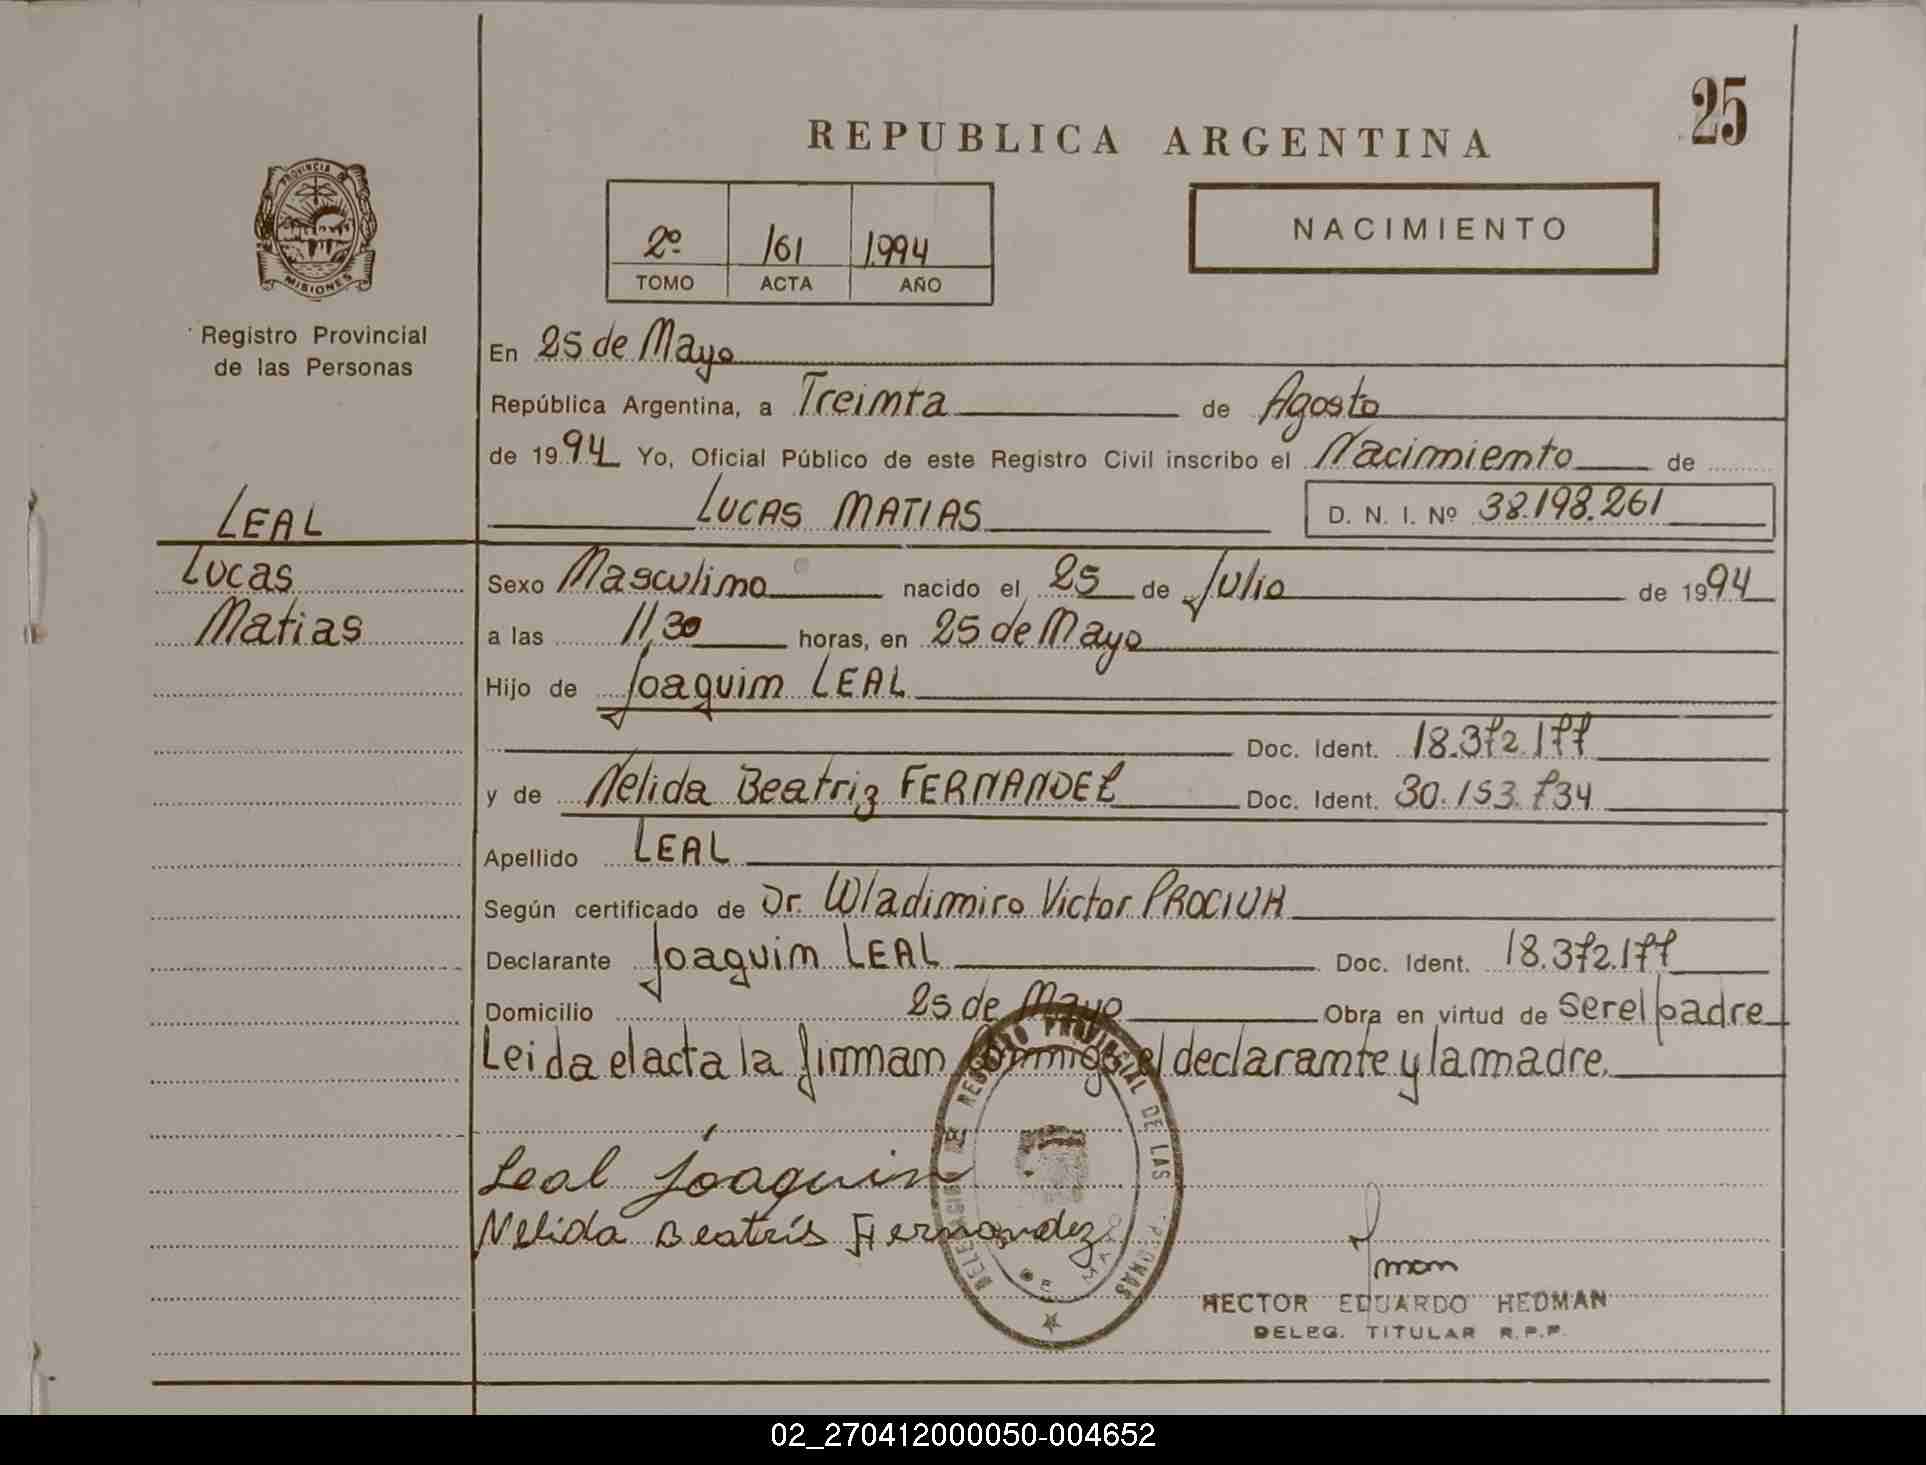 25
REPUBLICA ARGENTINA
NACIMIENTO
2º 161 1.994
TOMO ACTA AÑO
PROVINCIA DE
MISIONES
Registro Provincial
de las Personas
LEAL
Lucas
Matias
En 25 de Mayo
República Argentina, a Treinta de Agosto
de 1994 Yo, Oficial Público de este Registro Civil inscribo el Nacimiento de
LUCAS MATIAS D. N. I. Nº 38.198.261
Sexo Masculino nacido el 25 de Julio de 1994
a las 11,30 horas, en 25 de Mayo
Hijo de Joaquim LEAL
Doc. Ident. 18.372.177
y de Nelida Beatriz FERNANDEZ Doc. Ident. 30.153.734
Apellido LEAL
Según certificado de Dr. Wladimiro Victor PROCIUK
Declarante Joaquim LEAL Doc. Ident. 18.372.177
Domicilio 25 de Mayo Obra en virtud de ser el padre
Leida el acta la firman conmigo el declarante y la madre.
Leal Joaquin
Nelida Beatris Fernandez
DELEGACION REGISTRO PROVINCIAL DE LAS
DE MAYO
HECTOR EDUARDO HEDMAN
DELEG. TITULAR R.P.P.
02_270412000050-004652